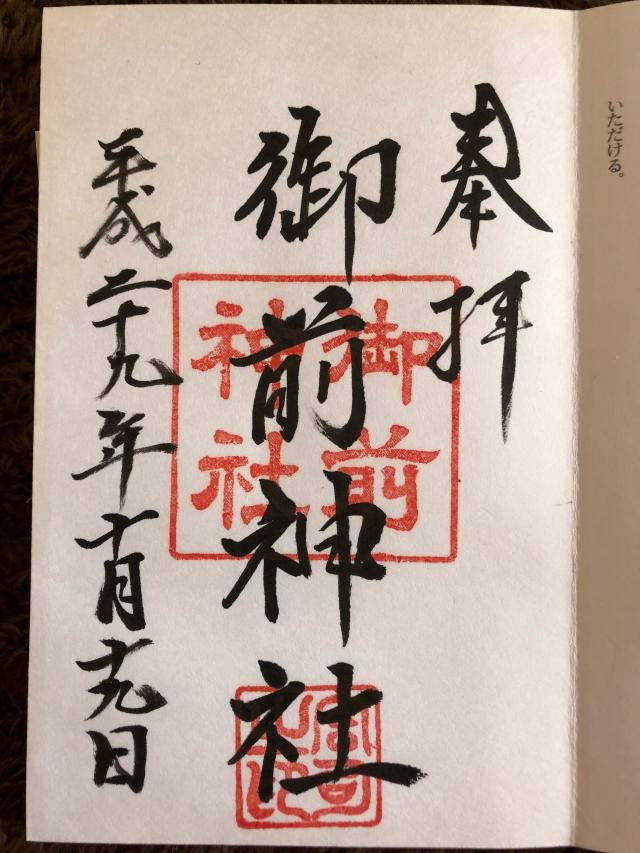 いただける。
奉拝
御前神社
御前
神社
平成二十九年十一月十九日